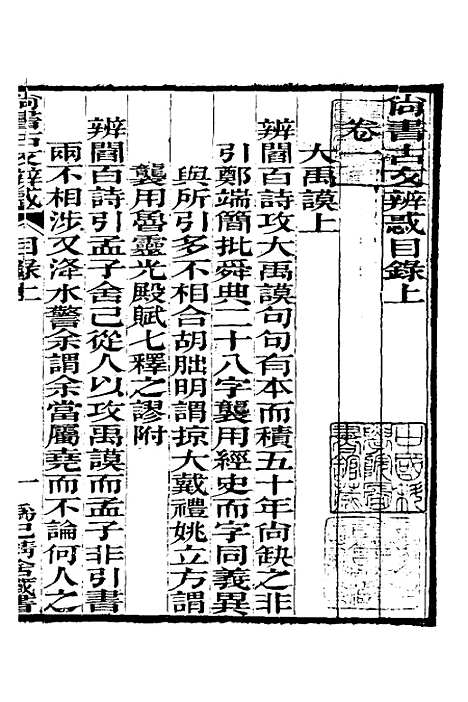 尙書古文辨惑目錄上
卷一
大禹謨上
辨閻百詩攻大禹謨句句有本而積五十年尙缺之非
引鄭端簡批舜典二十八字襲用經史而字同義異
與所引多不相合胡朏明謂掠大戴禮姚立方謂
襲用魯靈光殿賦七釋之謬附
辨閻百詩引孟子舍己從人以攻禹謨而孟子非引書
兩不相涉又洚水警余謂余當屬堯而不論何人之
尙書古文辨惑
目錄上
一
中國科學院圖書館藏